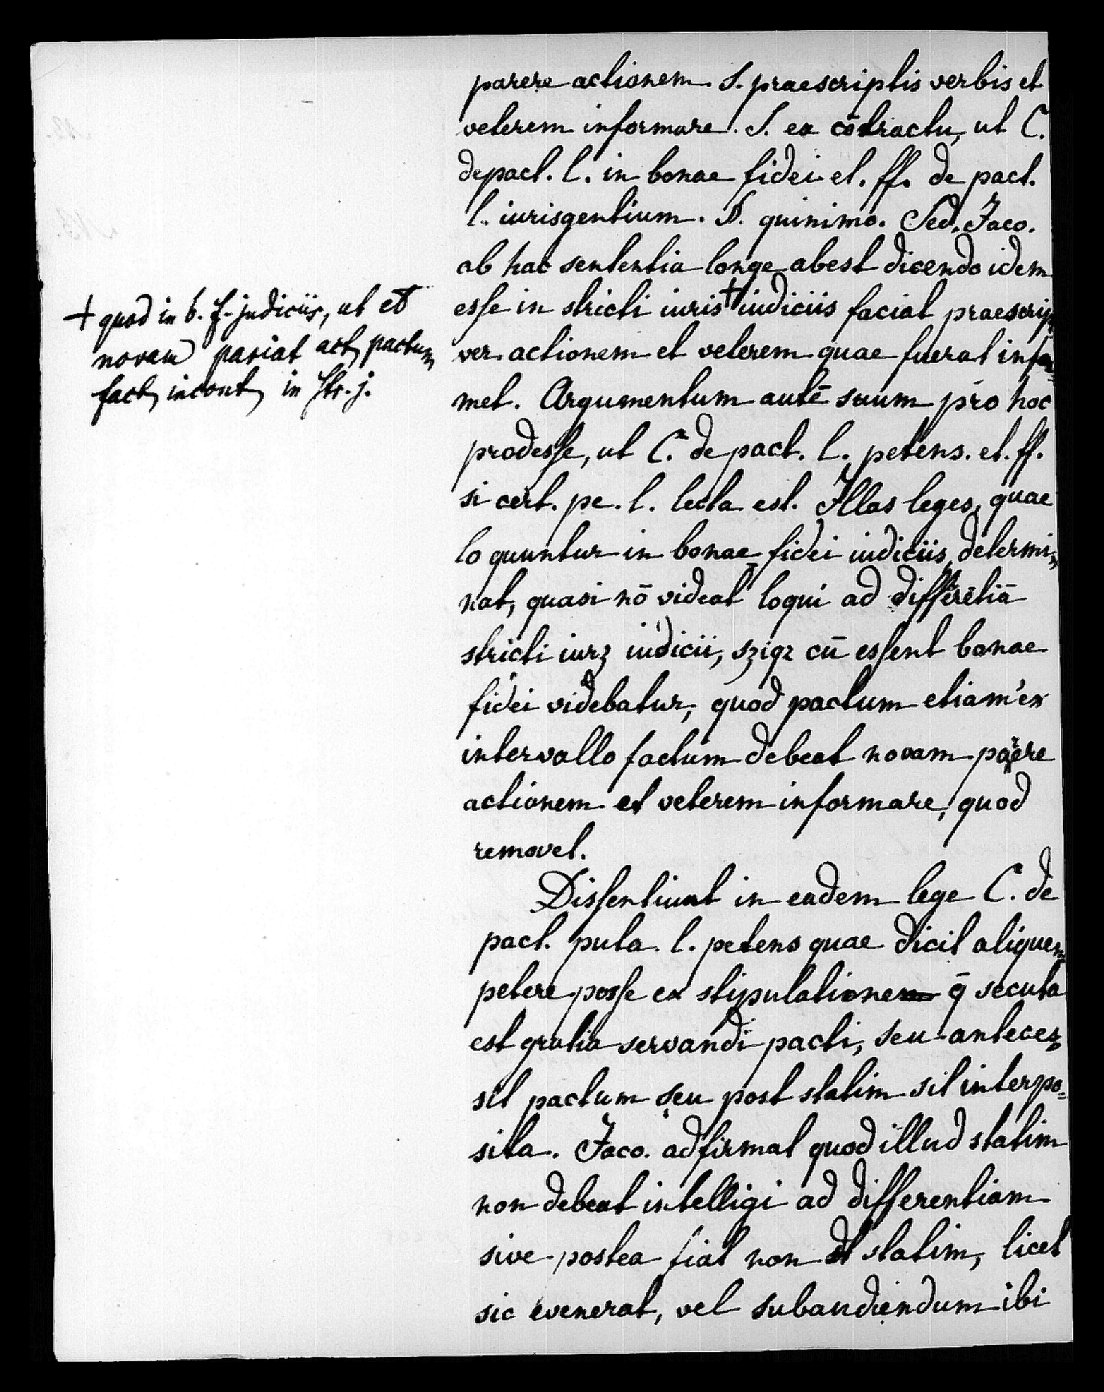 parere actionem. S. praescriptis verbis et
veterem informare. S. ex cōtractu, ut C.
de pact. l. in bonae fidei et. ff. de pact.
l. iurisgentium. §. quinimo. Sed. Jaco.
ab hac sententia longe abest dicendo idem
esse in stricti iuris + iudiciis faciat praescrip
ver actionem et veterem quae fuerat infor=
met. Argumentum autē suum pro hoc
prodesse, ut C. de pact. l. petens. et. ff.
si cert. pe. l. lecta est. Illas leges, quae
loquuntur in bonae fidei iudiciis, determi=
nat, quasi nō videat loqui ad differētiā
stricti iurʒ iudicii, cū essent bonae
fidei videbatur, quod pactum etiam ex
intervallo factum debeat novam parere
actionem et veterem informare, quod
removet.
Dissentiunt in eadem lege C. de
pact. puta l. petens quae dicit aliquem
petere posse ex stipulatione q̄ secuta
est gratia servandi pacti, seu anteces=
sit pactum seu post statim sit interpo=
sita. Jaco. adfirmat quod illud statim
non debeat intelligi ad differentiam
sive postea fiat non statim, licet
sic evenerat, vel subaudiendum ibi
+ quod in b. f. judiciis, ut et
novam pariat act, pactum
fact, incont, in str. j.